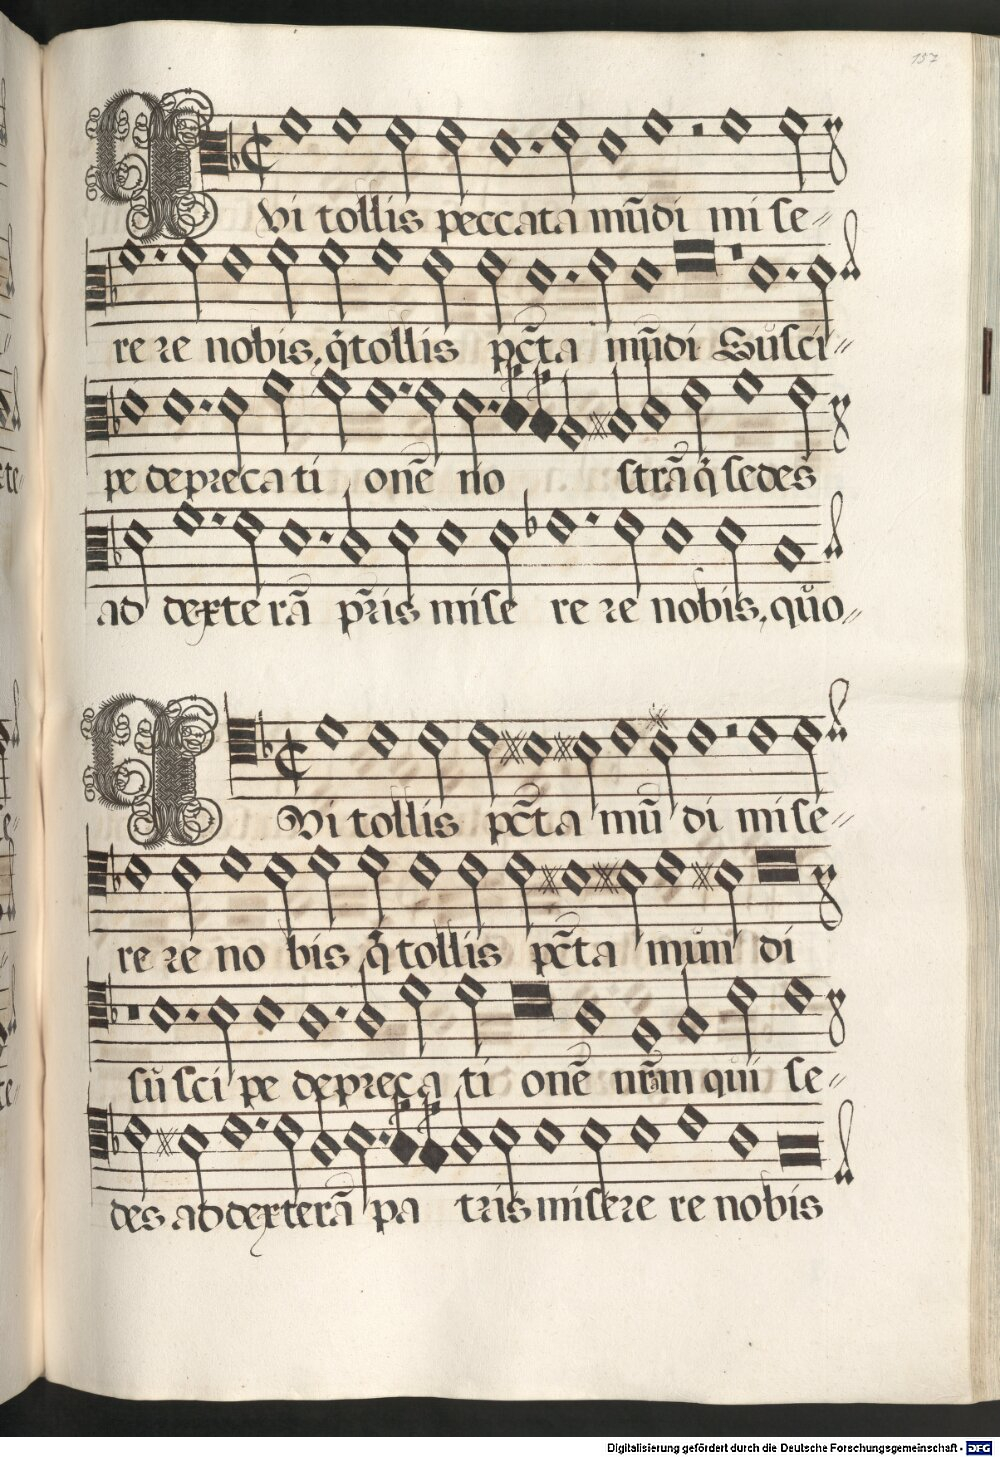 157
QVi tollis peccata mūdi mise=
re re nobis, q̄ tollis pc̄ta mūdi Susci=
pe deprecati onē no strā q̄ sedes
ad dexterā pr̄is mise re re nobis, quo=
QVi tollis pc̄ta mū di mise=
re re no bis q̄ tollis pc̄ta mun di
susci pe depreca ti onē nr̄am qui se=
des ad dexterā pa tris misere re nobis
Digitalisierung gefördert durch die Deutsche Forschungsgemeinschaft - DFG